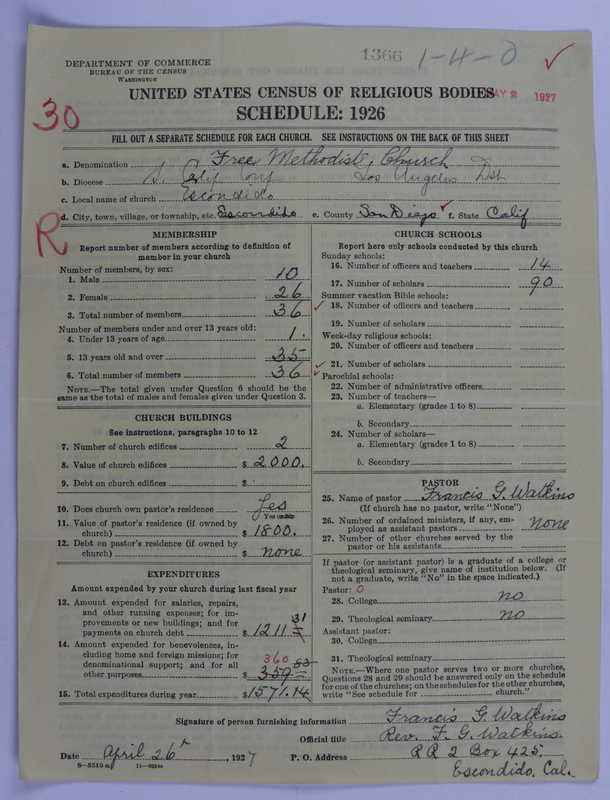 1366 1-4-0
DEPARTMENT OF COMMERCE
BUREAU OF THE CENSUS
WASHINGTON
UNITED STATES CENSUS OF RELIGIOUS BODIES
MAY 2 1927
SCHEDULE: 1926
30
FILL OUT A SEPARATE SCHEDULE FOR EACH CHURCH. SEE INSTRUCTIONS ON THE BACK OF THIS SHEET
a. Denomination Free Methodist Church
b. Diocese S. Calif Conf Los Angeles Dst
c. Local name of church Escondido
d. City, town, village, or township, etc. Escondido e. County San Diego f. State Calif
R
MEMBERSHIP
Report number of members according to definition of
member in your church
Number of members, by sex:
1. Male 10
2. Female 26
3. Total number of members 36
Number of members under and over 13 years old:
4. Under 13 years of age 1.
5. 13 years old and over 35
6. Total number of members 36
NOTE.—The total given under Question 6 should be the
same as the total of males and females given under Question 3.
CHURCH BUILDINGS
See instructions, paragraphs 10 to 12
7. Number of church edifices 2
8. Value of church edifices $ 2000.
9. Debt on church edifices $
10. Does church own pastor's residence? Yes
Yes or No
11. Value of pastor's residence (if owned by
church) $ 1800.
12. Debt on pastor's residence (if owned by
church) $ none
EXPENDITURES
Amount expended by your church during last fiscal year
13. Amount expended for salaries, repairs,
and other running expenses; for im-
provements or new buildings; and for
payments on church debt $ 1211 31
14. Amount expended for benevolences, in-
cluding home and foreign missions; for
denominational support; and for all
other purposes $ 359 83
360
15. Total expenditures during year $ 1571.14
CHURCH SCHOOLS
Report here only schools conducted by this church
Sunday schools:
16. Number of officers and teachers 14
17. Number of scholars 90
Summer vacation Bible schools:
18. Number of officers and teachers
19. Number of scholars
Week-day religious schools:
20. Number of officers and teachers
21. Number of scholars
Parochial schools:
22. Number of administrative officers
23. Number of teachers—
a. Elementary (grades 1 to 8)
b. Secondary
24. Number of scholars—
a. Elementary (grades 1 to 8)
b. Secondary
PASTOR
25. Name of pastor Francis G. Watkins
(If church has no pastor, write "None")
26. Number of ordained ministers, if any, em-
ployed as assistant pastors none
27. Number of other churches served by the
pastor or his assistants
If pastor (or assistant pastor) is a graduate of a college or
theological seminary, give name of institution below. (If
not a graduate, write "No" in the space indicated.)
Pastor: 0
28. College no
29. Theological seminary no
Assistant pastor:
30. College
31. Theological seminary
NOTE.—Where one pastor serves two or more churches,
Questions 28 and 29 should be answered only on the schedule
for one of the churches; on the schedules for the other churches,
write "See schedule for church."
Signature of person furnishing information Francis G. Watkins
Official title Rev. F. G. Watkins.
Date April 26, 1927 P. O. Address RR 2 Box 425.
Escondido, Cal.